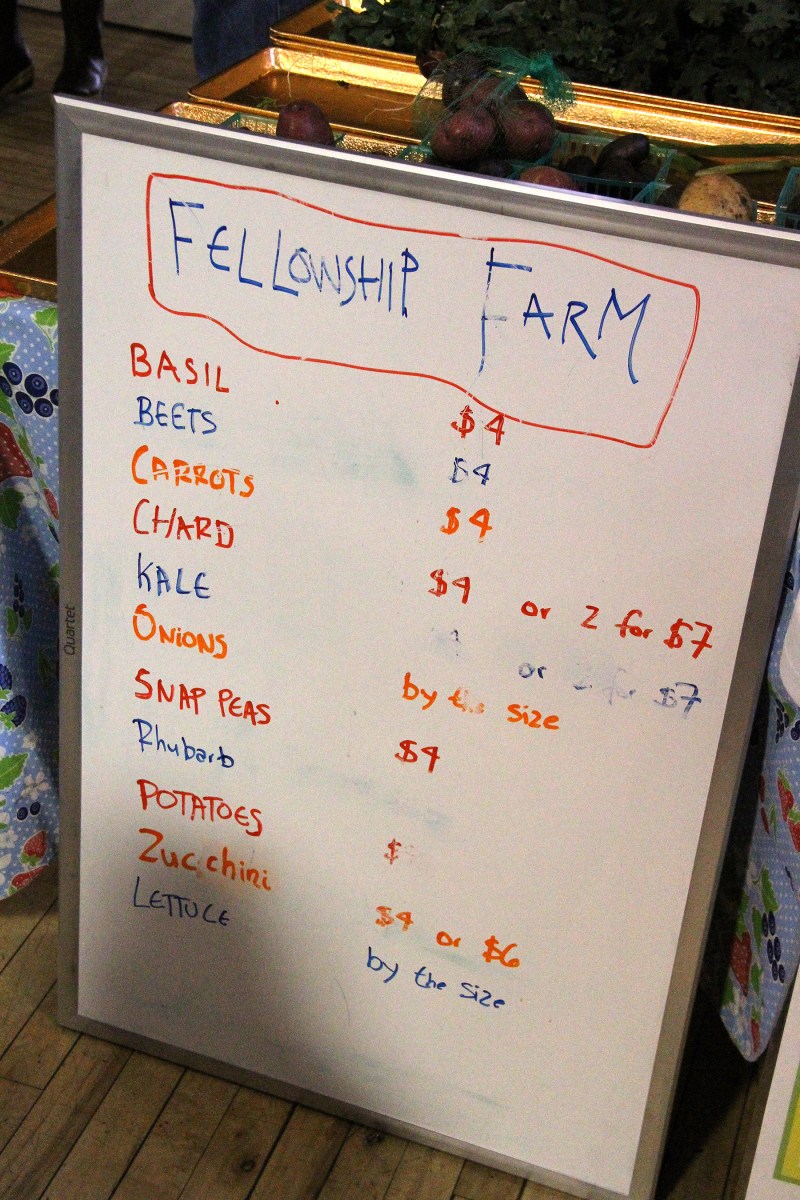 FELLOWSHIP FARM
BASIL $4
BEETS $4
CARROTS $4
CHARD $4 or 2 for $7
KALE or for $7
ONIONS by the size
SNAP PEAS $4
Rhubarb
POTATOES $
Zucchini $4 or $6
LETTUCE by the size
Quartet